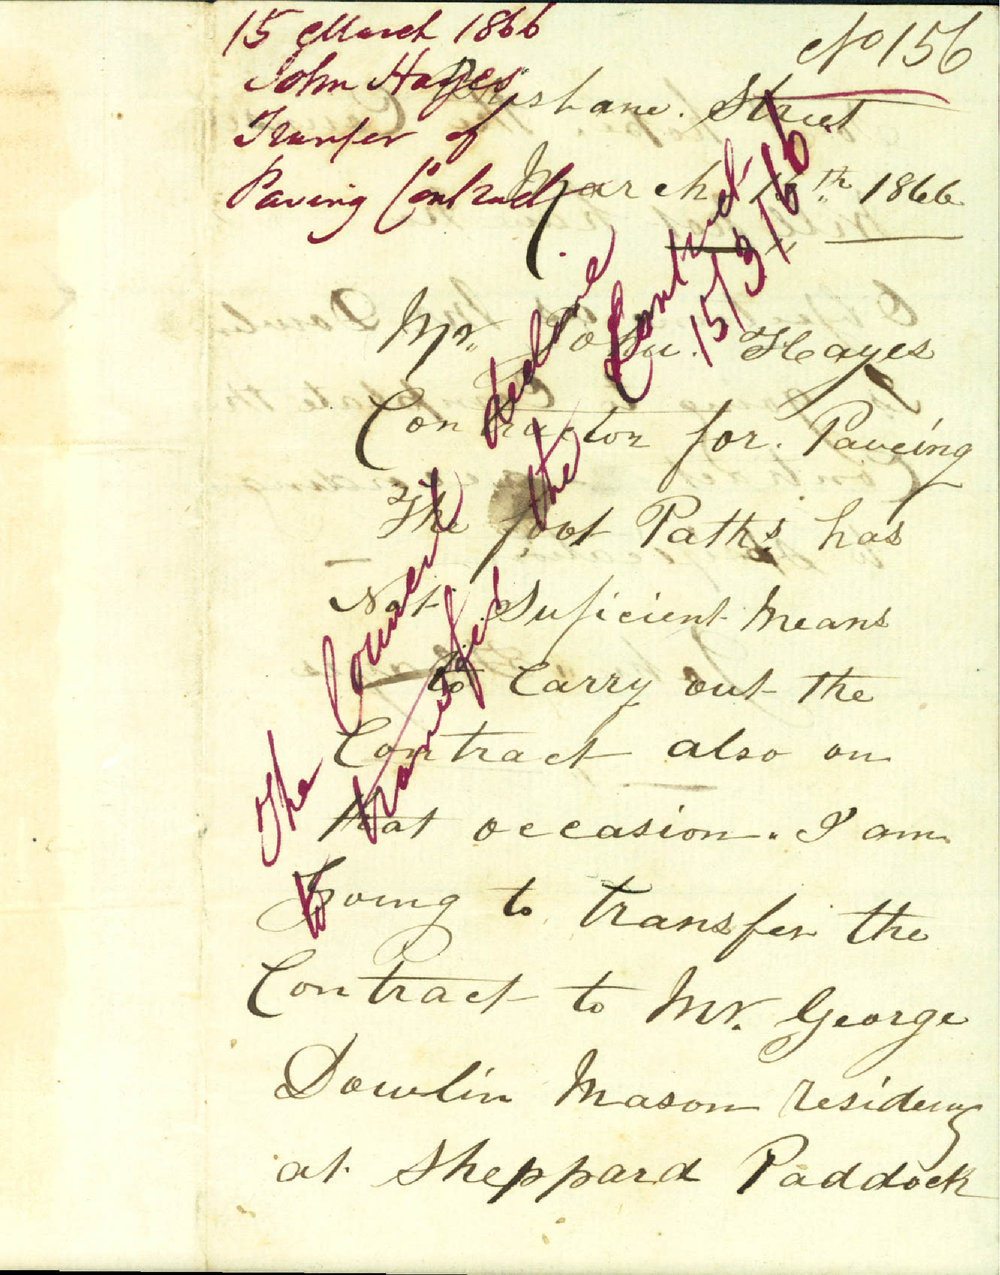 15 March 1866
John Hayes
Transfer of
Paving Contract
No 156
Brisbane. Street
March 15th 1866
Mr. John. Hayes
Contractor for. Paveing
The foot Paths has
Not Suficient Means
to Carry out the
Contract also on
that occasion. I am
Going to transfer the
Contract to Mr. George
Dowlin Mason residing
at Sheppard Paddock
The Council decline
to transfer the Contract
15/3/66